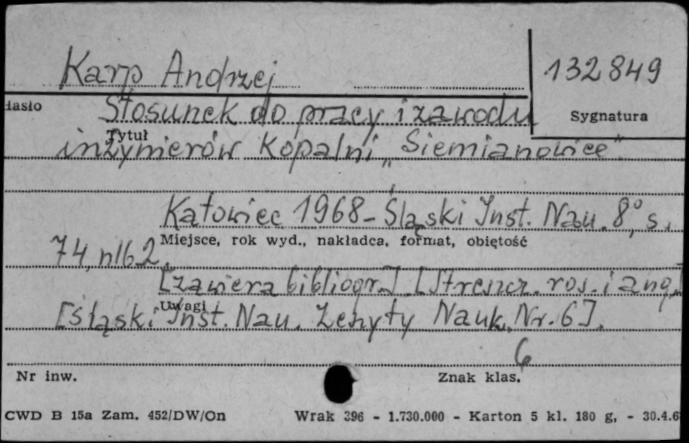 Karp Andrzej
132849
Hasło
Stosunek do pracy i zawodu
Sygnatura
Tytuł
inżynierów Kopalni „Siemianowice".
Katowice 1968 - Śląski Inst. Nau. 8°, s.
Miejsce, rok wyd., nakładca, format, objętość
74, nlb 2.
[zawiera bibliogr.] [Streszcz. ros. i ang.]
Uwagi
[Śląski Inst. Nau. Zeszyty Nauk. Nr. 6].
6
Nr inw.
Znak klas.
CWD B 15a Zam. 452/DW/On Wrak 396 - 1.730.000 - Karton 5 kl. 180 g, - 30.4.6